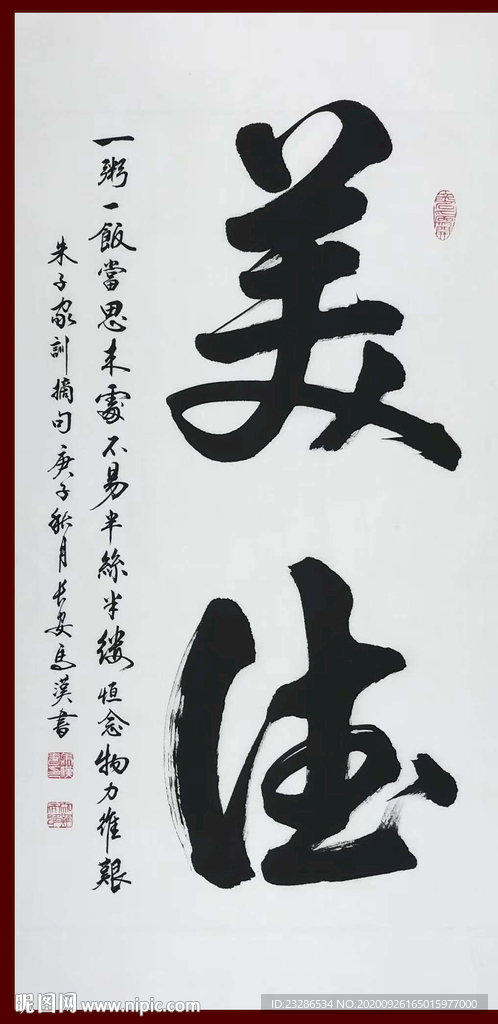 美德
一粥一飯當思来處不易半絲半縷恒念物力維艱
朱子家訓摘句庚子秋月長安馬漢書
昵图网 www.nipic.com
ID:23286534 NO:20200926165015977000